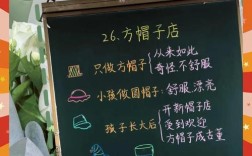 26.方帽子店
只做方帽子
从来如此
奇怪不舒服
小孩做圆帽子:舒服、漂亮
孩子长大后
开新帽子店
受到欢迎
方帽子成古董